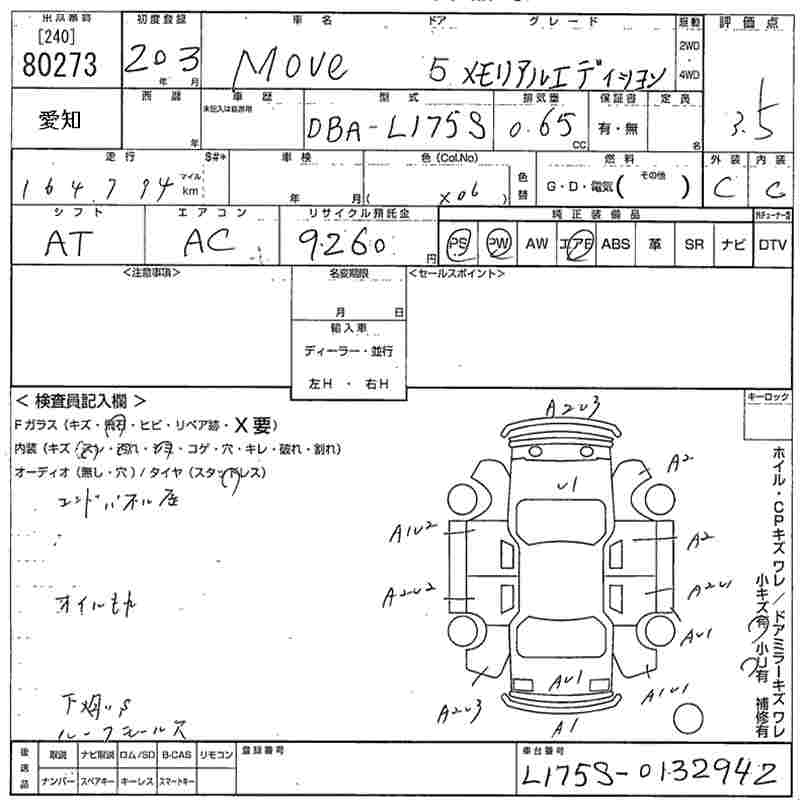 出品番号 初度登録 車名 ドア グレード 駆動 評価点
[240]
80273 203 Move 5 メモリアルエディション 2WD・4WD 3.5
年 月
愛知 西暦 車歴 型式 排気量 保証書 定員
未記入は自家用
年 DBA-L175S 0.65 CC 有・無 名
走行 S#* 車検 色(Col.No) 燃料 外装 内装
164,794 マイル km 年 月 ( X06 ) 色替 G・D・電気( その他 ) C C
シフト エアコン リサイクル預託金 純正装備品
AT AC 9260 円 PS PW AW エアB ABS 革 SR ナビ DTV
<注意事項> 名変期限 <セールスポイント>
月 日
輸入車
ディーラー・並行
左H ・ 右H
< 検査員記入欄 > キーロック
Fガラス(キズ・飛石・ヒビ・リペア跡・X要)
オーディオ(無し・穴)/タイヤ(スタッドレス)
エンドパネル歪
オイルもれ
ルーフモール欠
A2U3
U1
A2
A1U2
A2
A2U2
A2U1
AU1
A2U3
AU1
A1U1
A1
ホイル・CPキズ ワレ/ドアミラーキズ ワレ
小キズ有 小U有 補修有
後送品 取説 ナビ取説 ロム/SD B-CAS リモコン 登録番号 車台番号
ナンバー スペアキー キーレス スマートキー L175S-0132942